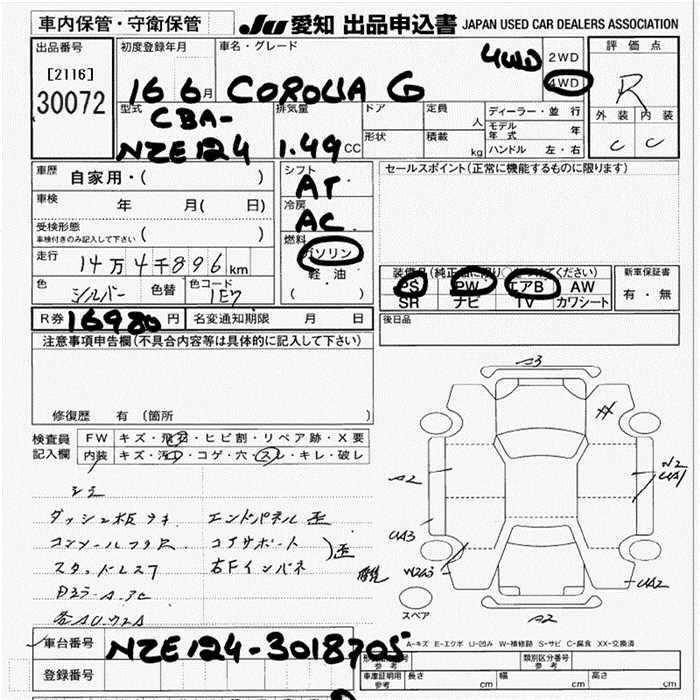 車内保管・守衛保管
JU 愛知 出品申込書 JAPAN USED CAR DEALERS ASSOCIATION
出品番号 初度登録年月 車名・グレード 4WD 2WD 評価点
[2116] 4WD R
30072 16 6月 COROLLA G 外装 内装
型式 排気量 ドア 定員 人 ディーラー・並行 C C
CBA- モデル年式 年
NZE124 1.49 CC 形状 積載 kg ハンドル 左・右
車歴 自家用・( ) シフト セールスポイント(正常に機能するものに限ります)
AT
車検 年 月( 日) 冷房
AC
受検形態 ( )
車検付きのみ記入して下さい
燃料
走行 14万4千896km ガソリン
軽油
( )
装備品(純正品に限り)をつけてください) 新車保証書
PS PW エアB AW 有・無
SR ナビ TV カワシート
色 シルバー 色替 色コード 1E7
R券 16980円 名変通知期限 月 日 後日品
注意事項申告欄(不具合内容等は具体的に記入して下さい)
修復歴 有 (箇所 )
検査員記入欄 FW キズ・飛石・ヒビ割・リペア跡・X要
内装 キズ・汚れ・コゲ・穴・スレ・キレ・破レ
シミ
ダッシュ板ラキ エンドパネル歪
コアサポート
スタッドレス7 右Fインパネ )歪
A3
A2
A2
UA1
UA3
W2A3
UA2
A2
スペア
A-キズ E-エクボ U-凹み W-補修跡 S-サビ C-腐食 XX-交換済
車台番号 NZE124-3018705
登録番号
類別区分番号 参考
車庫証明用 参考 長さ cm 幅 cm 高さ cm